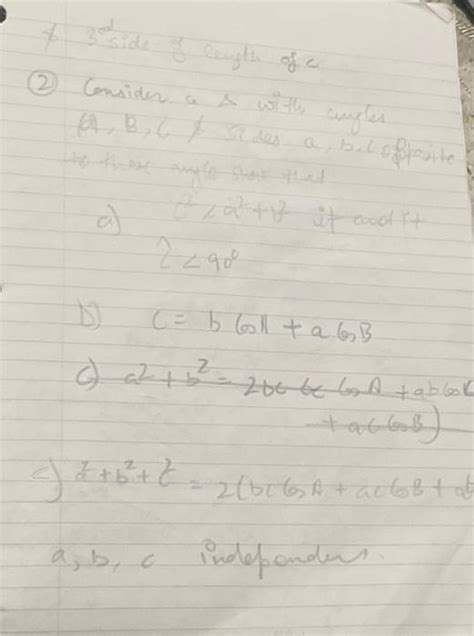 & 3rd side of length of c
② Consider a Δ with angles
A, B, C & sides a, b, c opposite
to those angle show that
a) c² < a² + b² if and if
∠ < 90°
b) c = b Cos A + a Cos B
c) a² + b² = 2bc bc Cos A + ab Cos C
+ ac Cos B)
c) a² + b² + c² = 2(bc Cos A + ac Cos B + ab
a, b, c independens.